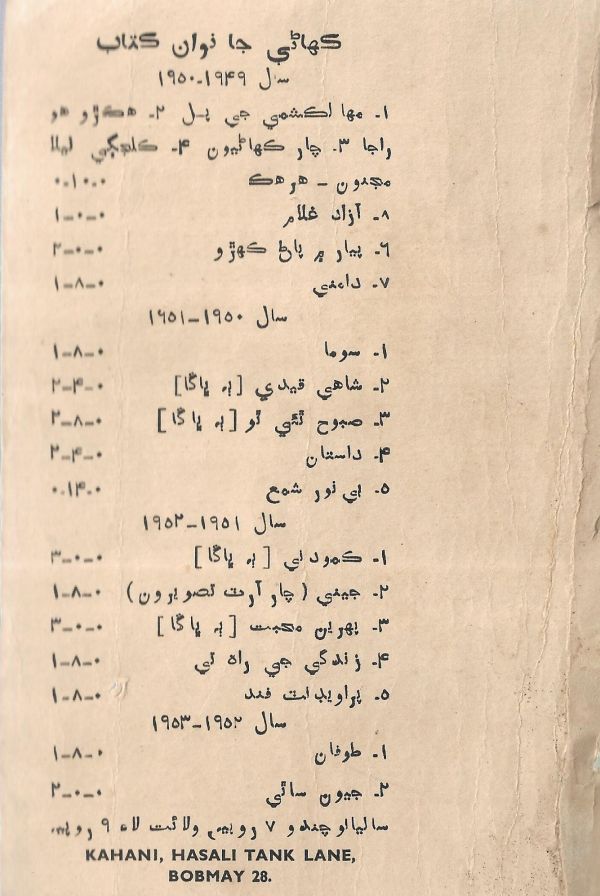 ڪهاڻي جا نوان ڪتاب
سال ١٩٤٩-١٩٥٠
١. مها لڪشمي جي پل ٢. هڪڙو هو
راجا ٣. چار ڪهاڻيون ٤. ڪلجڳي ليلا
مجنون - هر هڪ ٠-١٠-٠
٨. آزاد غلام ١-٠-٠
٦. پيار ۾ پاڻ ڪهڙو ٢-٠-٠
٧. دامني ١-٨-٠
سال ١٩٥٠-١٦٥١
١. سوما ١-٨-٠
٢. شاهي قيدي [ٻه ڀاڱا] ٢-٤-٠
٣. صبوح ٿئي ٿو [ٻه ڀاڱا] ٢-٨-٠
٤. داستان ٢-٤-٠
٥. بي نور شمع ٠-١٤-٠
سال ١٩٥١-١٩٥٢
١. ڪمودني [ٻه ڀاڱا] ٣-٠-٠
٢. جيني (چار آرٽ تصويرون) ١-٨-٠
٣. پهرين محبت [ٻه ڀاڱا] ٣-٠-٠
٤. زندگي جي راه تي ١-٨-٠
٥. پراويڊنٽ فنڊ ١-٨-٠
سال ١٩٥٢-١٩٥٣
١. طوفان ١-٨-٠
٢. جيون ساٿي ٢-٠-٠
ساليانو چندو ٧ روپيه ولائت لاءِ ٩ روپيه
KAHANI, HASALI TANK LANE,
BOBMAY 28.